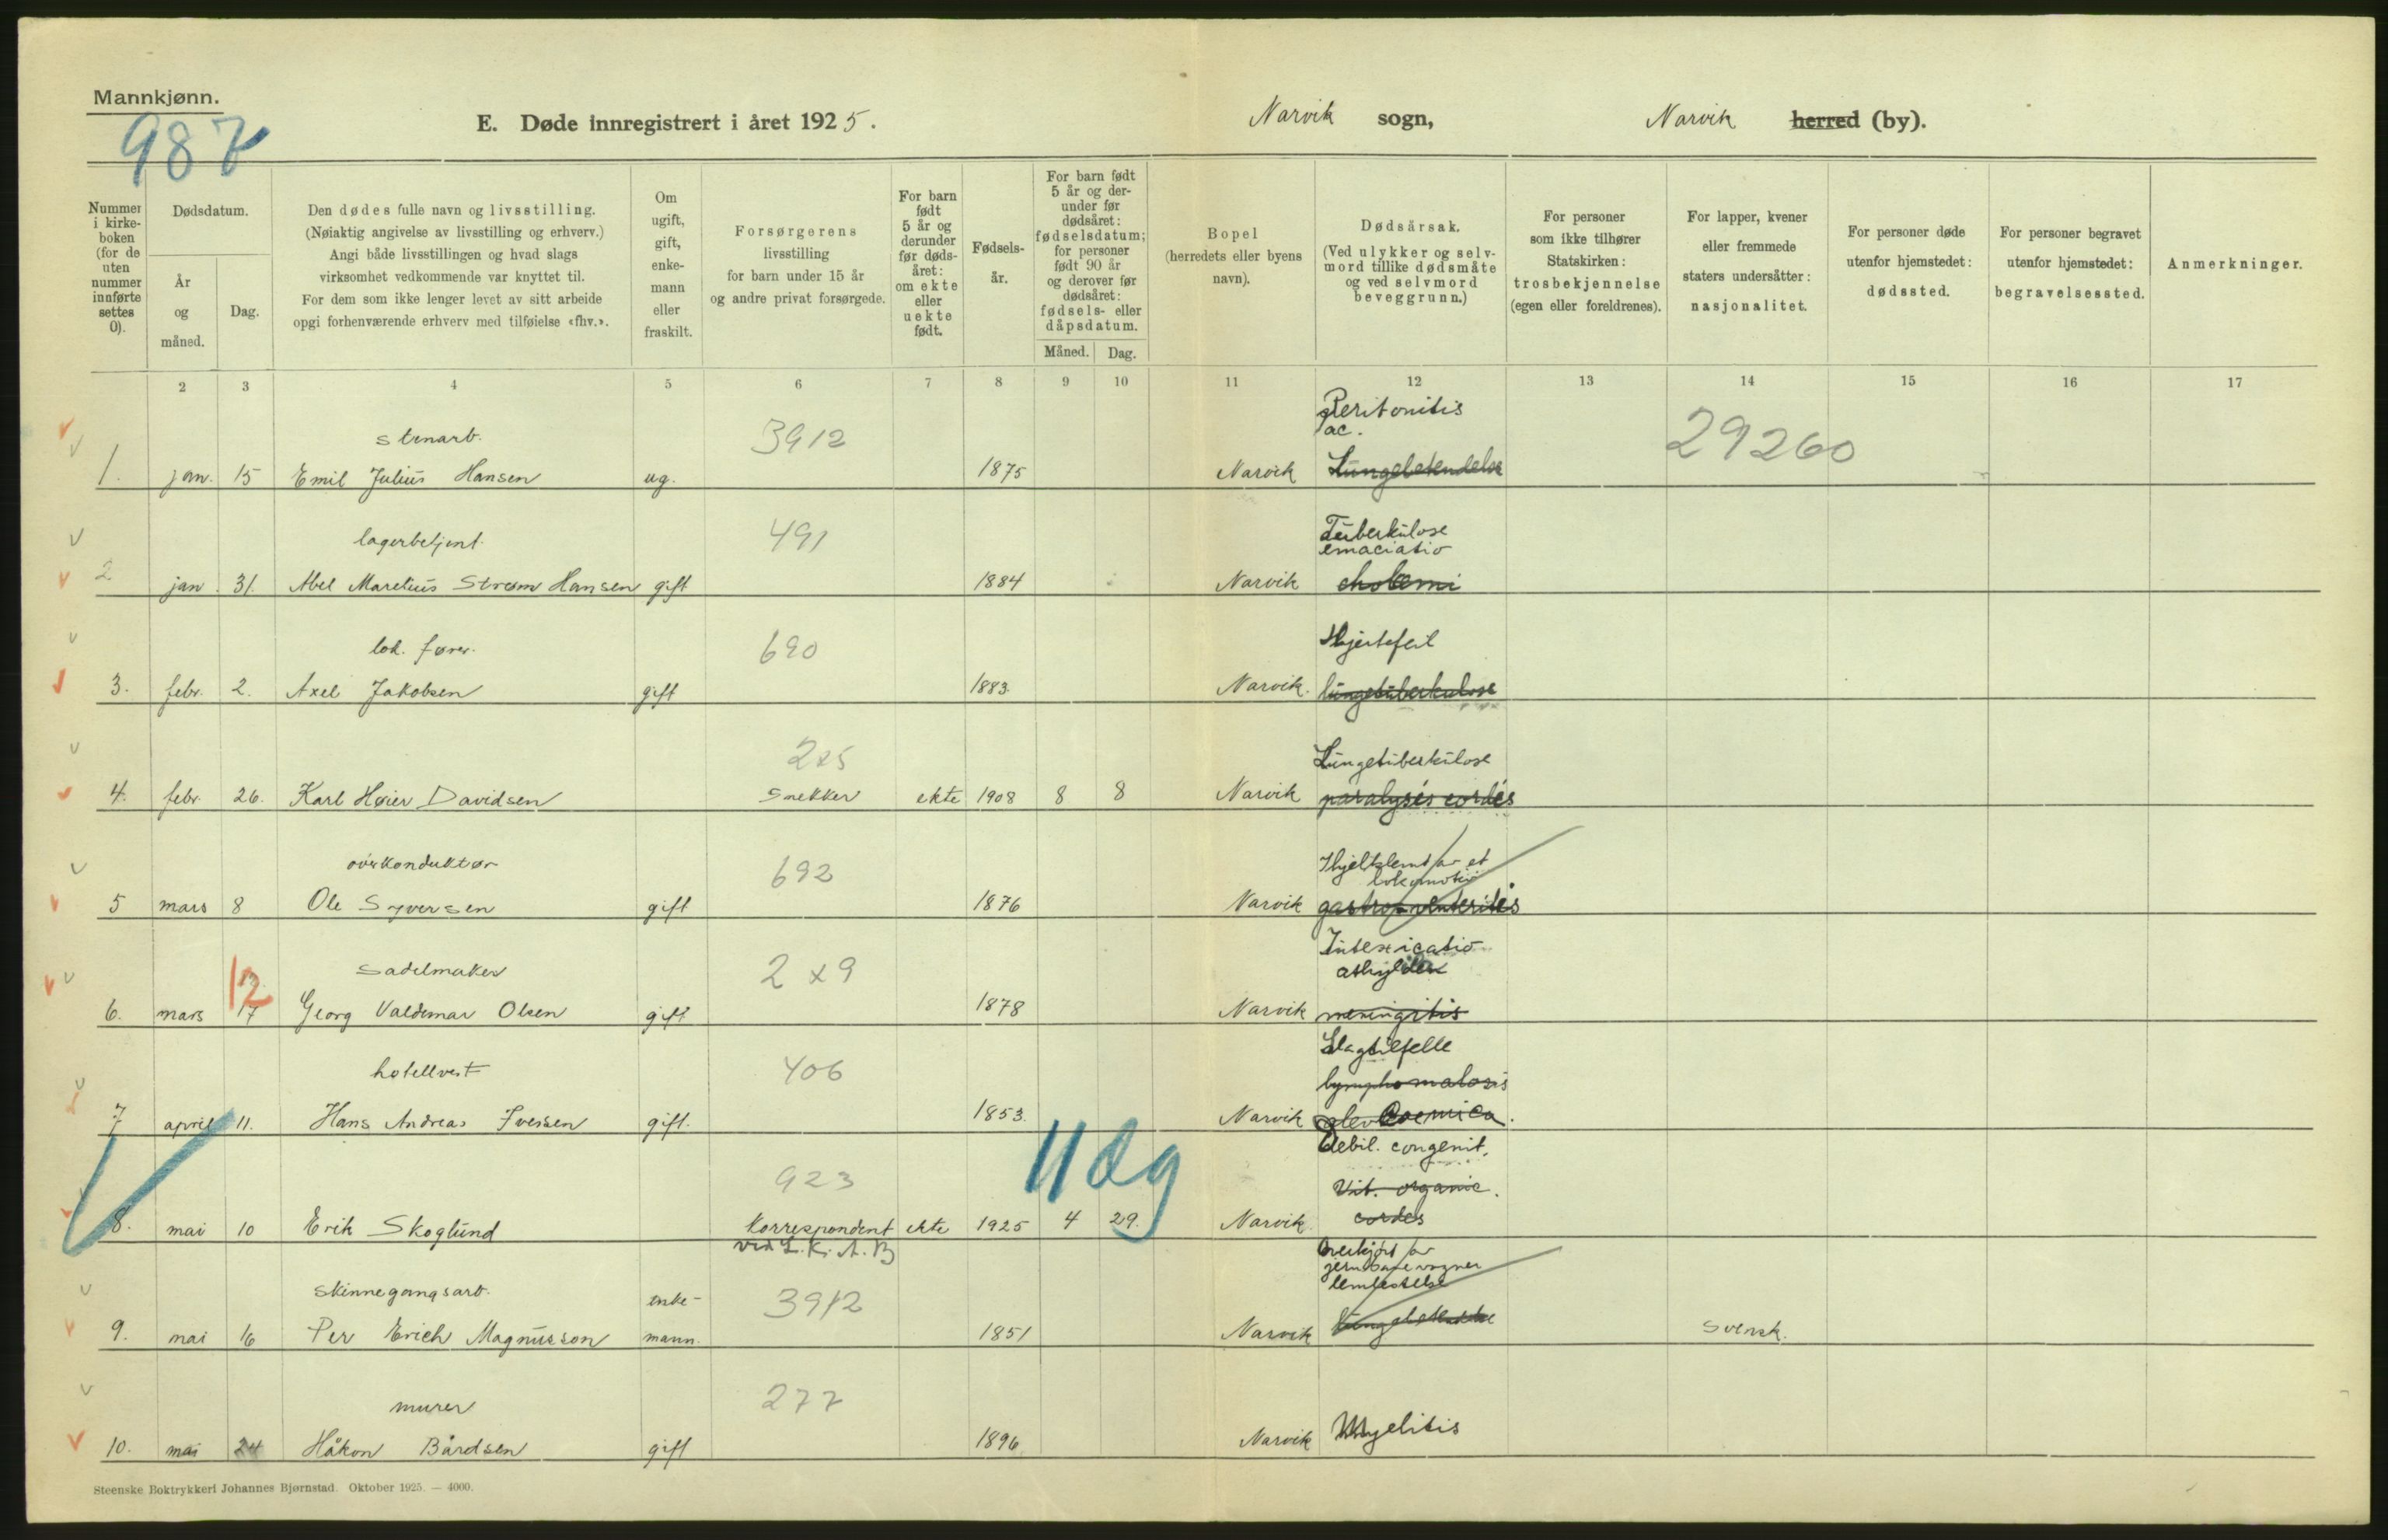 Mannkjønn.
987
E. Døde innregistrert i året 1925.
Narvik sogn,
Narvik herred (by).
Nummer i kirkeboken (for de uten nummer innførte settes 0).
Dødsdatum.
År og måned.
Dag.
Den dødes fulle navn og livsstilling.
(Nøiaktig angivelse av livsstilling og erhverv.)
Angi både livsstillingen og hvad slags
virksomhet vedkommende var knyttet til.
For dem som ikke lenger levet av sitt arbeide
opgi forhenværende erhverv med tilføielse «fhv.».
Om ugift, gift, enkemann eller fraskilt.
Forsørgerens
livsstilling
for barn under 15 år
og andre privat forsørgede.
For barn født 5 år og derunder før dødsåret: om ekte eller uekte født.
Fødselsår.
For barn født 5 år og derunder før dødsåret: fødselsdatum; for personer født 90 år og derover før dødsåret: fødsels- eller dåpsdatum.
Måned. Dag.
Bopel
(herredets eller byens
navn).
Dødsårsak.
(Ved ulykker og selvmord tillike dødsmåte og ved selvmord beveggrunn.)
For personer
som ikke tilhører
Statskirken:
trosbekjennelse
(egen eller foreldrenes).
For lapper, kvener
eller fremmede
staters undersåtter:
nasjonalitet.
For personer døde
utenfor hjemstedet:
dødssted.
For personer begravet
utenfor hjemstedet:
begravelsessted.
Anmerkninger.
2 3 4 5 6 7 8 9 10 11 12 13 14 15 16 17
Peritonitis
ac.
stenarb. 3912 29260
1. jan. 15 Emil Julius Hansen ug. 1875 Narvik Lungebetendelse
lagerbetjent. 491 Tuberkulose
emaciatio
2 jan. 31. Abel Maretius Strøm Hansen gift 1884 Narvik cholemi
lok. fører. 690 Hjertefeil
3. febr. 2. Axel Jakobsen gift 1883. Narvik. lungetuberkulose
2x5 Lungetuberkulose
4. febr. 26. Karl Høier Davidsen Snekker ekte 1908 8 8 Narvik paralysis cordis
overkonduktør 692 Ihjelklemt av et
lokomotiv
5 mars 8 Ole Syversen gift 1876 Narvik
Intoxicatio
12 sadelmaker 2 x 9
6. mars 17 Georg Valdemar Olsen gift 1878 Narvik meningitis
Slagtilfelle
hotellvert 406 lymphomatosis
7 april 11. Hans Andreas Iversen gift. 1853. Narvik
11 dg debil. congenit.
923 Vit. organic.
8. mai 10 Erik Skoglund Korrespondent ekte 1925 4 29. Narvik cordis
ved L. K. A. B
Overkjørt av
jernbanevogner
lemlestelse
skinnegangsarb. enke- 3912
9. mai 16 Per Erich Magnusson mann. 1851 Narvik Lungebetendelse svensk.
murer 277
10. mai 24 Håkon Bårdsen gift 1896 Narvik Myelitis
Steenske Boktrykkeri Johannes Bjørnstad. Oktober 1925. — 4000.